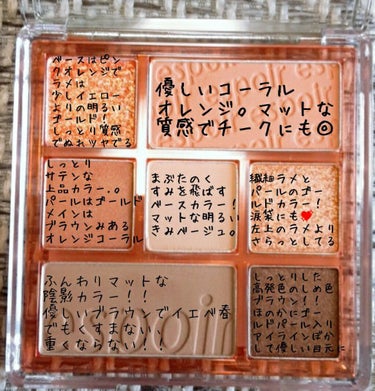 ベースはピン
クオレンジで
ラメは
少しイエロー
よりの明るい
ゴールド！
しっとり質感
でぬれツヤでる
優しいコーラル
オレンジ。マットな
質感でチークにも◎
しっとり
サテンな
上品カラー。。
パールはゴールド
メインは
ブラウンみある
オレンジコーラル
まぶたのく
すみを飛ばす
ベースカラー！
マットな明るい
きみベージュ。
繊細ラメと
パールのゴー
ルドカラー！
涙袋にも♥
左上のラメより
さらっとしてる
ふんわりマットな
陰影カラー！！
優しいブラウンでイエベ春
でもくすまない！
重くならない！！
しっとりした
高発色のしめ色
ブラウン！！
ほのかにゴー
ルドパール入り
アイラインぼか
して優しい目元に